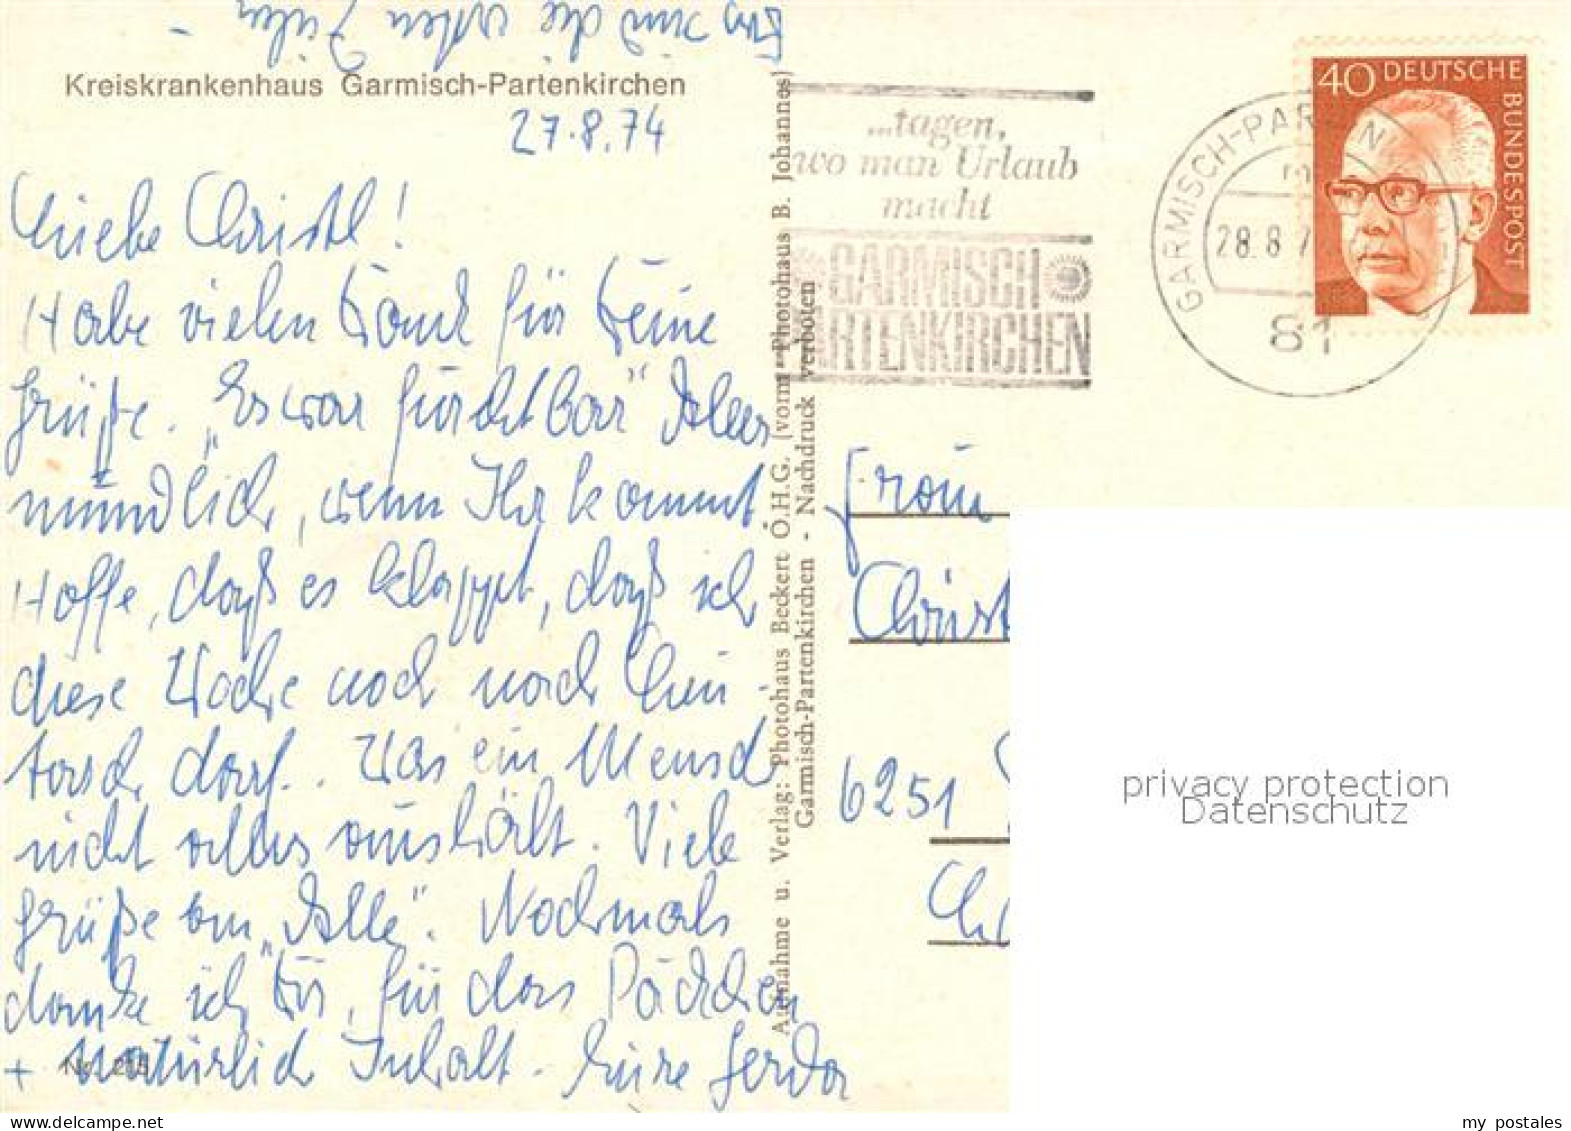 Kreiskrankenhaus Garmisch-Partenkirchen
27.8.74
Liebe Christl!
Habe vielen Dank für Deine
Grüße. "Es war furchtbar" Alles
mündlich, wenn Ihr kommt
Hoffe, daß es klappt, daß ich
diese Woche noch nach
darf. Was ein Mensch
nicht alles aushält. Viele
Grüße an "Alle". Nochmals
danke ich Dir, für das Päckchen
+ natürlich Inhalt. Eure Gerda
sind die
Aufnahme u. Verlag: Photohaus Beckert O.H.G. (vorm. Photohaus B. Johannes)
Garmisch-Partenkirchen - Nachdruck verboten
...tagen,
wo man Urlaub
macht
GARMISCH
RTENKIRCHEN
GARMISCH-PAR
28.8.7
81
40 DEUTSCHE
BUNDESPOST
Frau
Christ
6251
privacy protection
Datenschutz
my postales